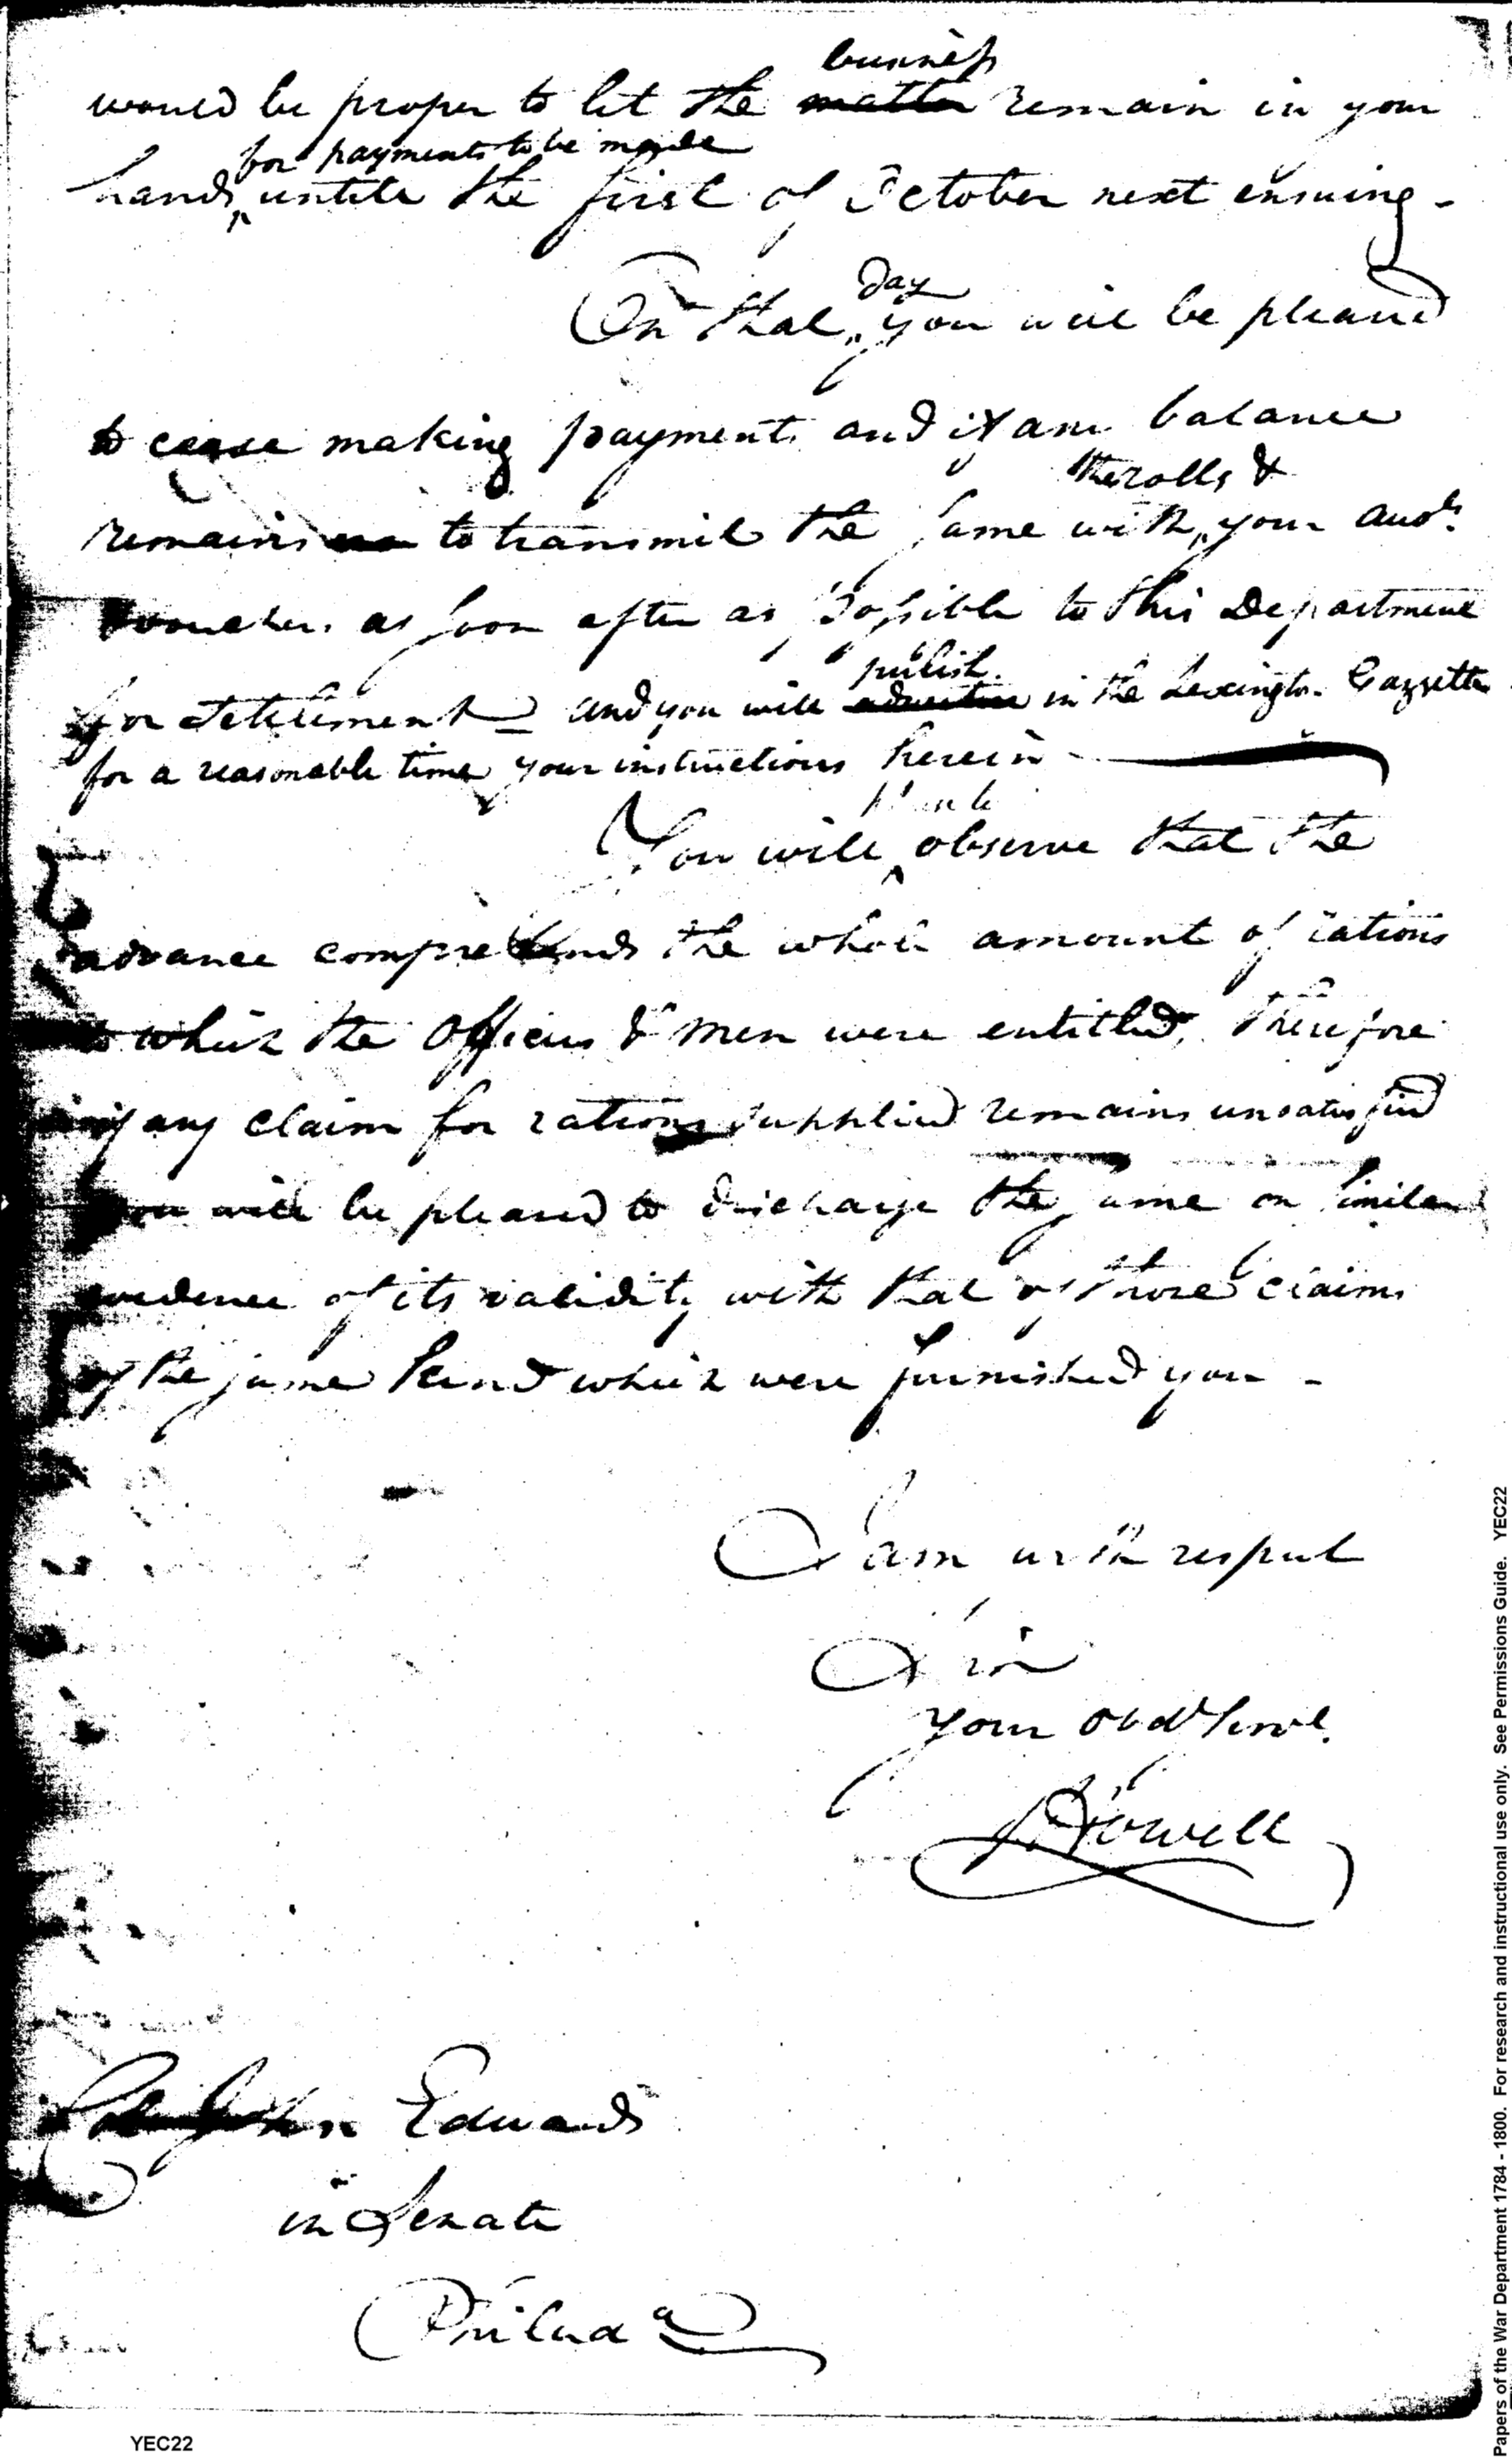 business
would be proper to let the matter remain in your
for payments to be made
hands, untill the first of October next ensuing -
day
On that, you will be pleased
to cease making payments and if any balance
the rolls &
remains to transmit the same with, your
vouchers as soon after as possible to this Department
publish
for settlement - and you will advertise in the Lexington Gazzette
for a reasonable time your instructions herein
please to
You will, observe that the
advance comprehends the whole amount of rations
to which the Officers & Men were entitled, therefore
if any claim for rations supplied remains unsatisfied
you will be pleased to discharge the same on similar
evidence of its validity with that of those claims
of the same kind which were furnished you -
I am with respect
Sir
your obdt servt.
J Howell
Col John Edwards
in Senate
Philada
YEC22
Papers of the War Department 1784 - 1800. For research and instructional use only. See Permissions Guide. YEC22